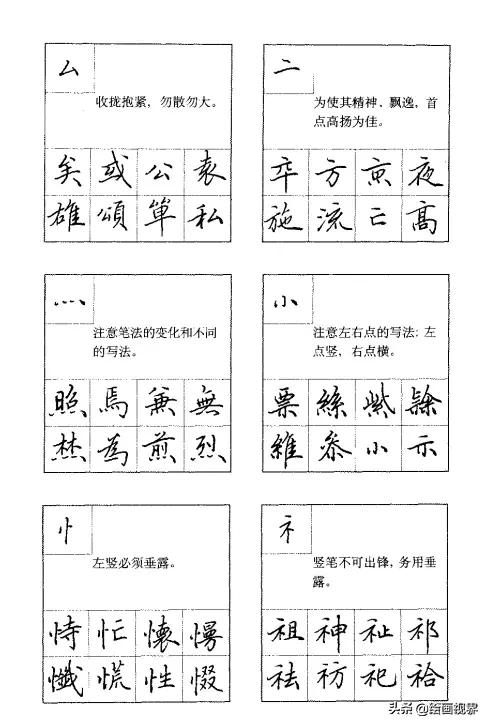 厶
收拢抱紧，勿散勿大。
矣 或 公 袁
雄 頌 私
亠
为使其精神、飘逸，首
点高扬为佳。
卒 方 京 夜
施 流 亡 高
灬
注意笔法的变化和不同
的写法。
照 馬 兼 無
為 煎 烈
小
注意左右点的写法：左
点竖，右点横。
票 絲 紫
維 小 示
忄
左竖必须垂露。
恃 忙 懷 慢
懺 慌 性 惙
礻
竖笔不可出锋，务用垂
露。
祖 神 祉 祁
祛 祊 祀 祫
头条 @绘画视界